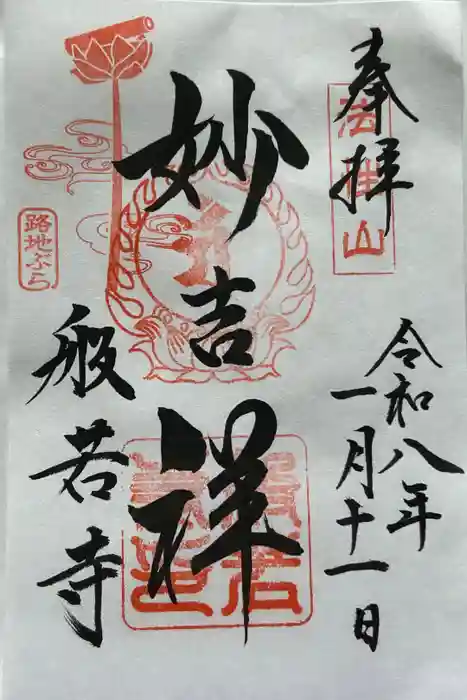 奉拝
法性山
令和八年
一月十一日
妙吉祥
般若寺
路地ぶら